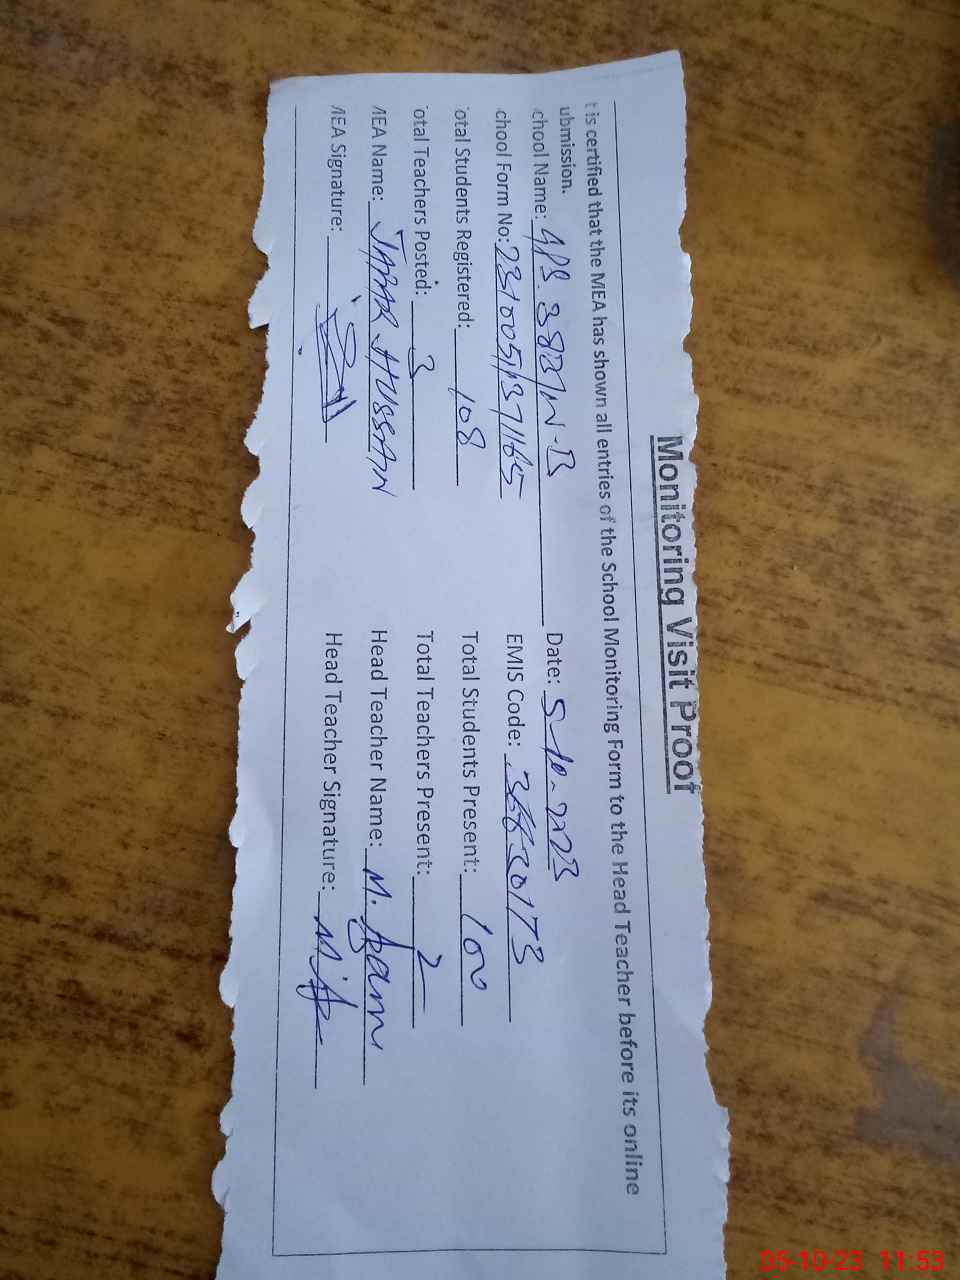 Monitoring Visit Proof
t is certified that the MEA has shown all entries of the School Monitoring Form to the Head Teacher before its online
ubmission.
chool Name: GPS. 388/W-B Date: 5-10-2023
chool Form No: EMIS Code: 36630173
otal Students Registered: 108 Total Students Present: 100
otal Teachers Posted: 3 Total Teachers Present: 2
MEA Name: JAFAR HUSSAIN Head Teacher Name: M. Azam
MEA Signature: Head Teacher Signature:
05-10-23 11:53